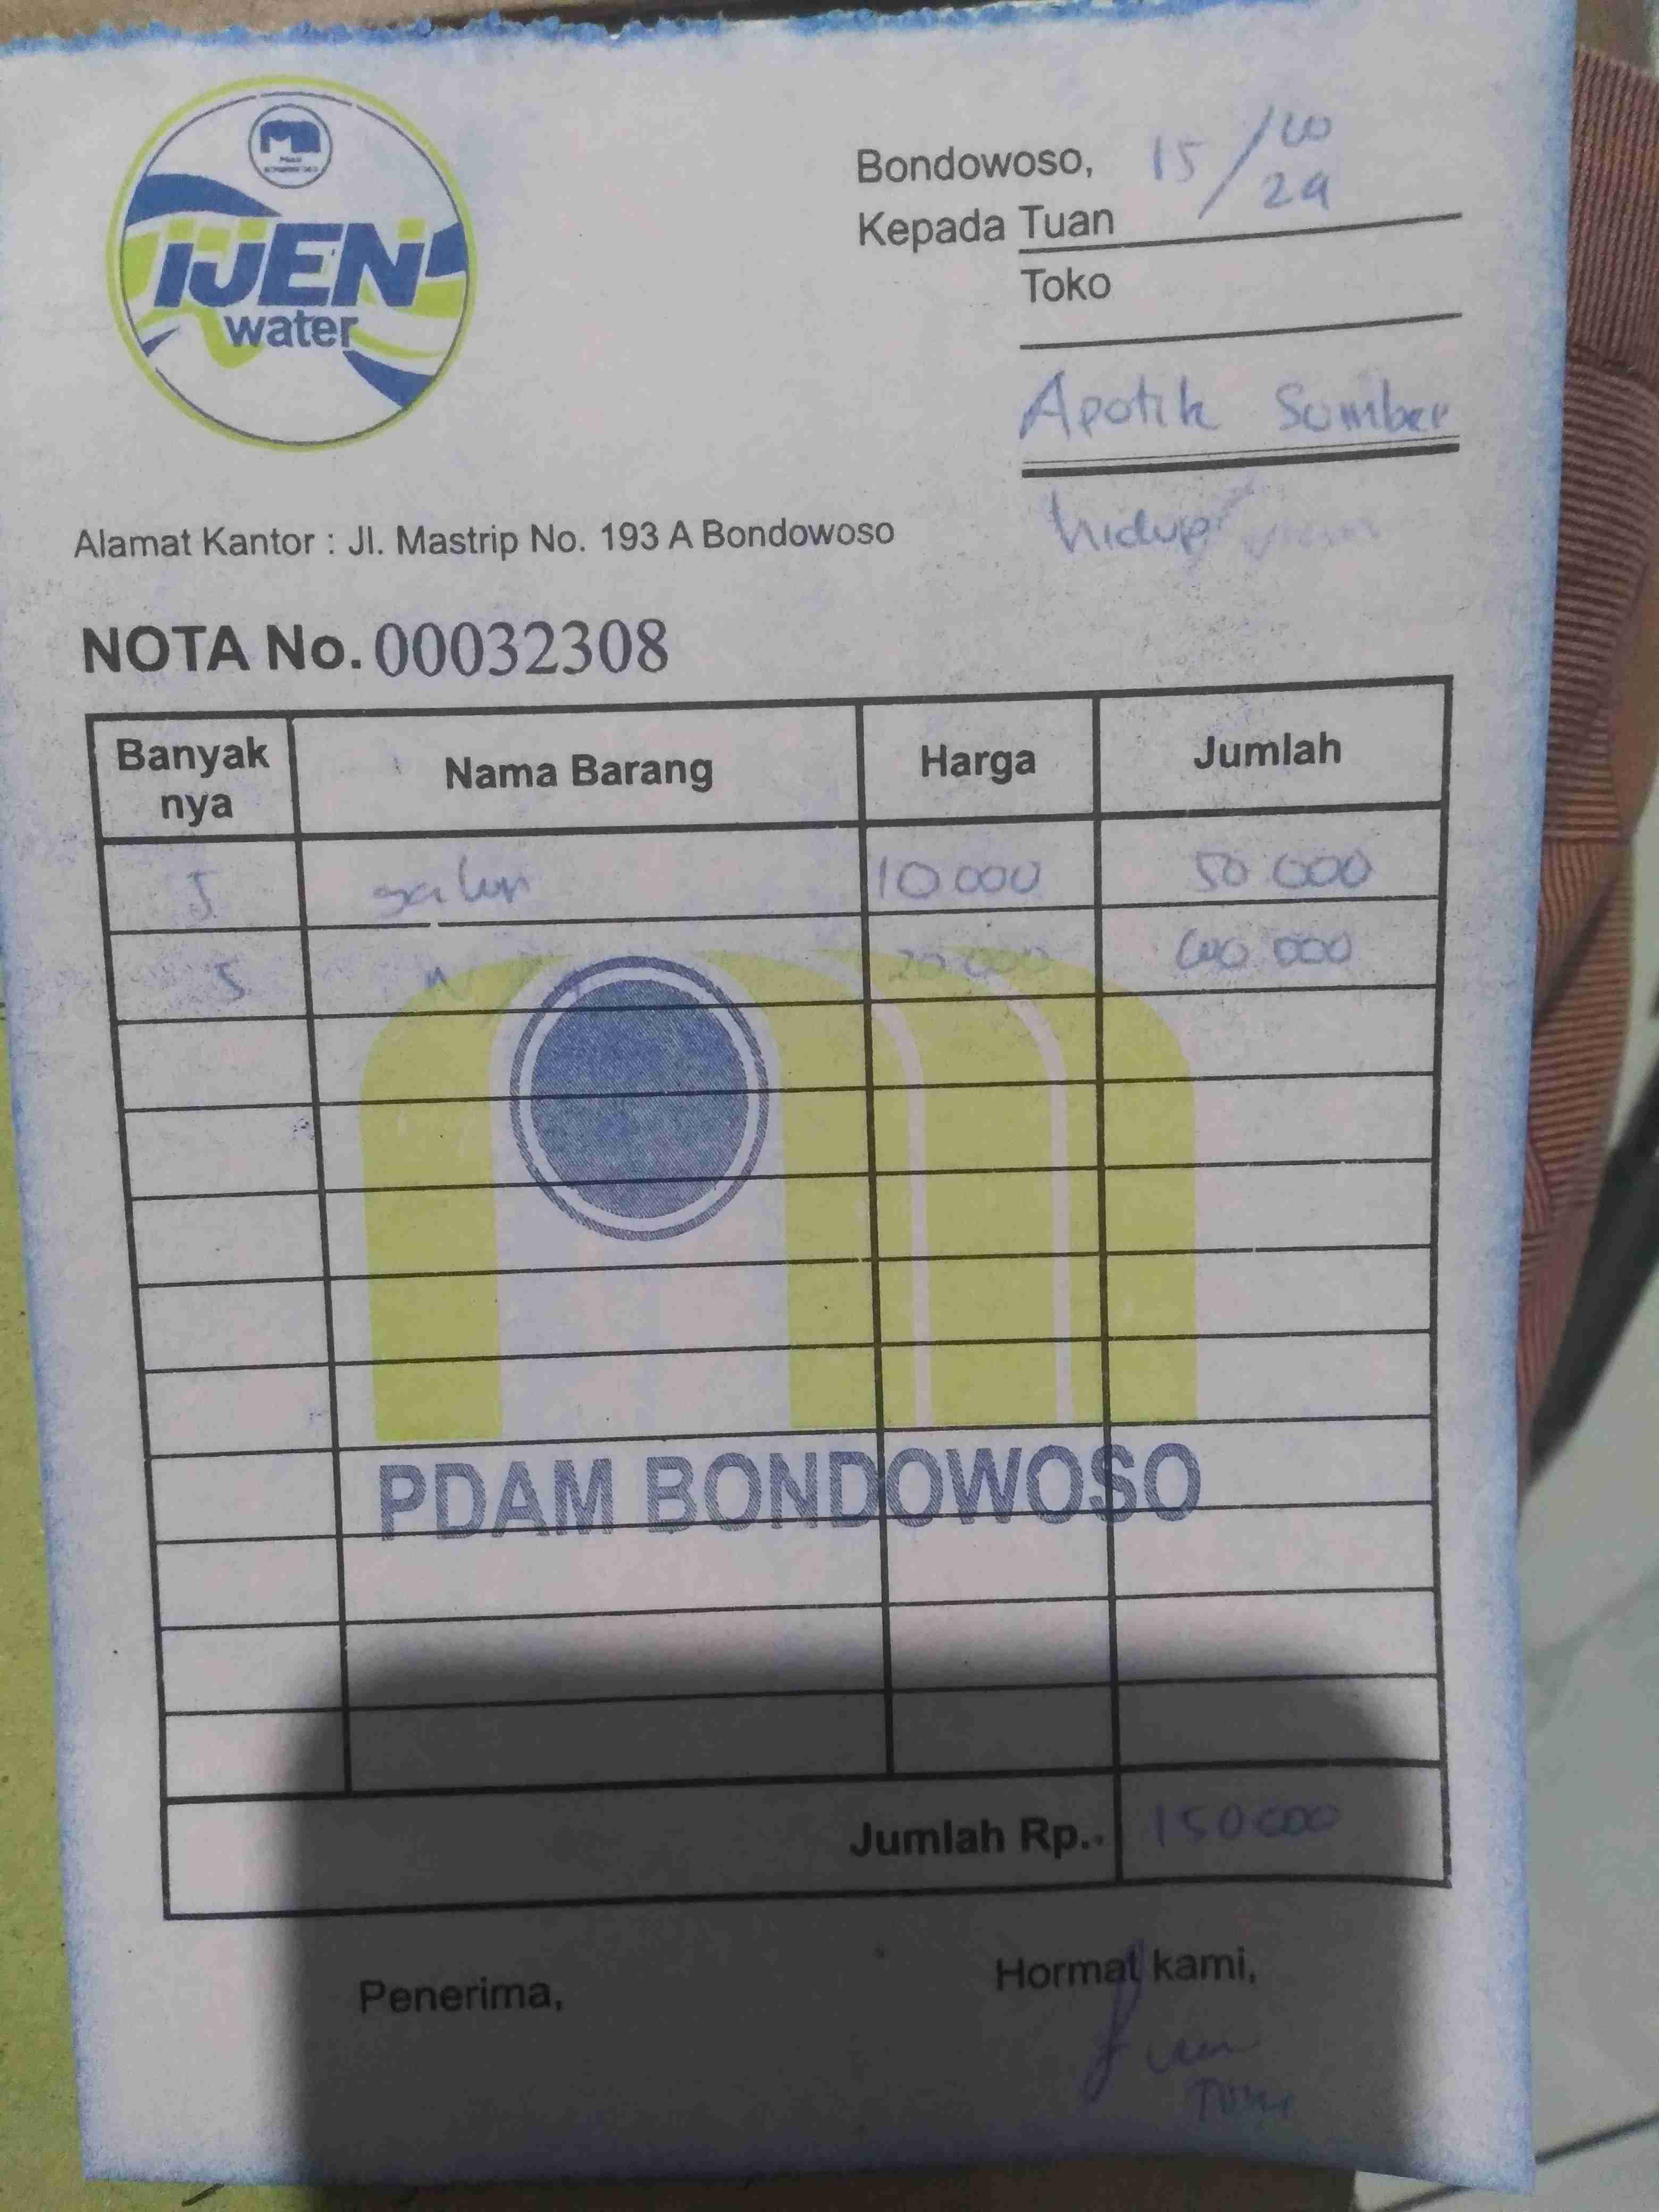 IJEN
water
Bondowoso, 15/10
24
Kepada Tuan
Toko
Apotik Sumber
hidup
Alamat Kantor : Jl. Mastrip No. 193 A Bondowoso
NOTA No. 00032308
Banyak nya Nama Barang Harga Jumlah
5 galon 10 000 50 000
5 20 000 100 000
PDAM BONDOWOSO
Jumlah Rp. 150 000
Penerima, Hormat kami,